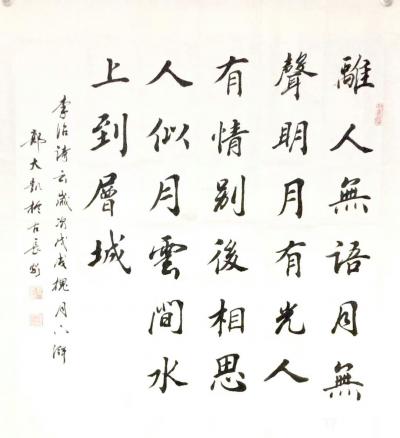 離人無語月無
聲明月有光人
有情別後相思
人似月雲間水
上到層城
李冶詩云歲次戊戌槐月下澣
大凱於古長安